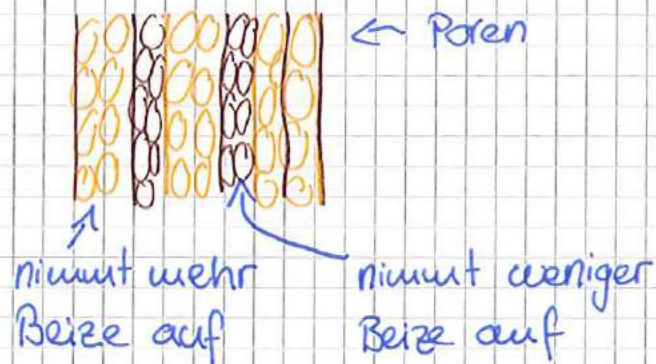 ← Poren
nimmt mehr
Beize auf
nimmt weniger
Beize auf